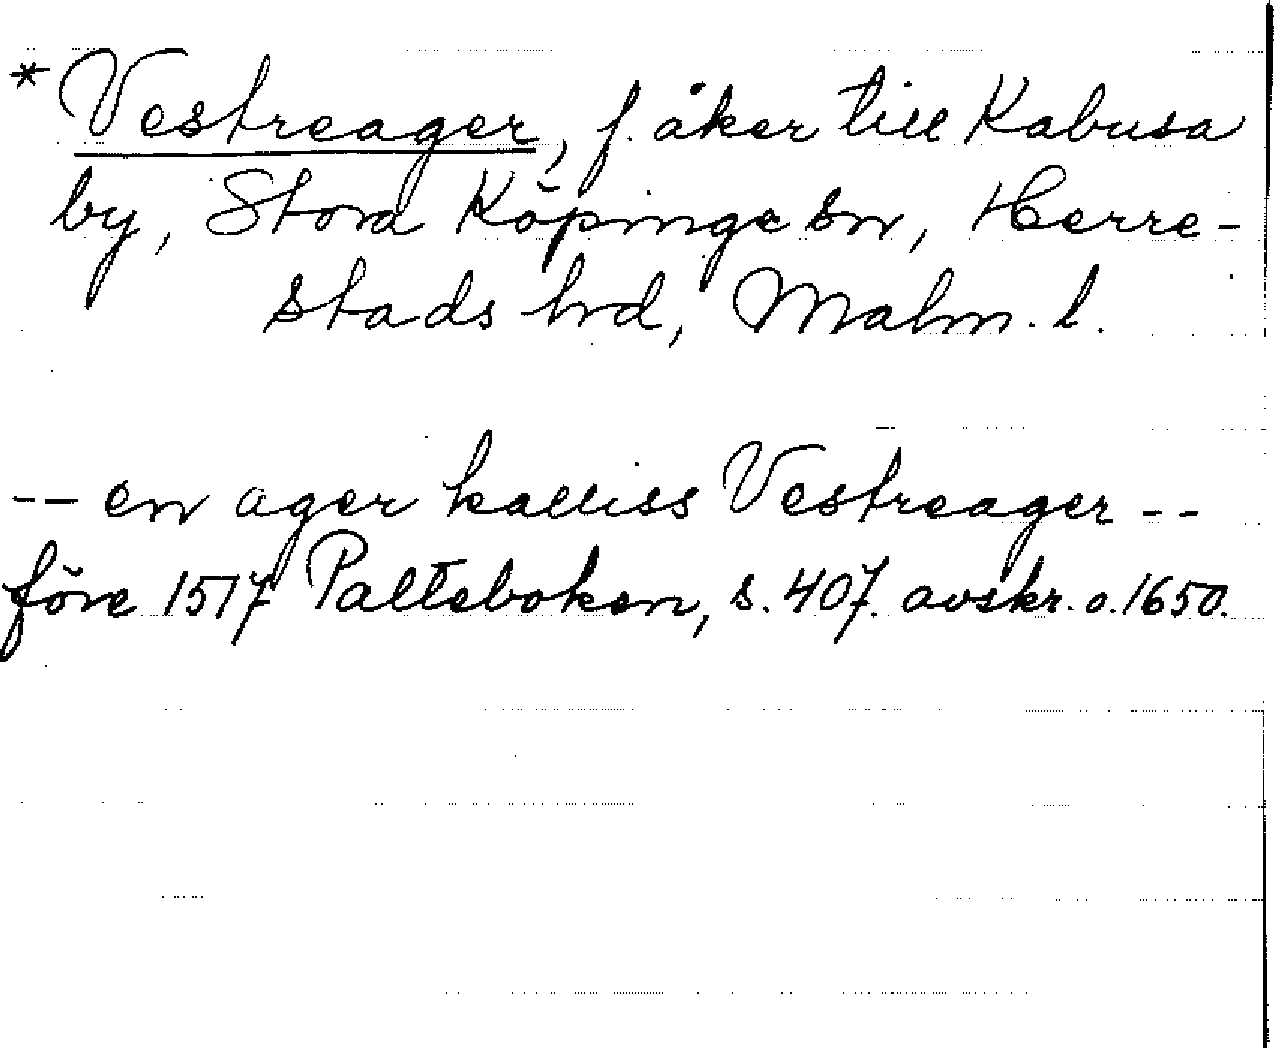 * Vestreager, f. åker till Kabusa
by, Stora Köpinge sn, Herre-
stads hrd, Malm. l.
-- en ager kalliss Vestreager --
före 1517 Palteboken, s. 407. avskr. o. 1650.